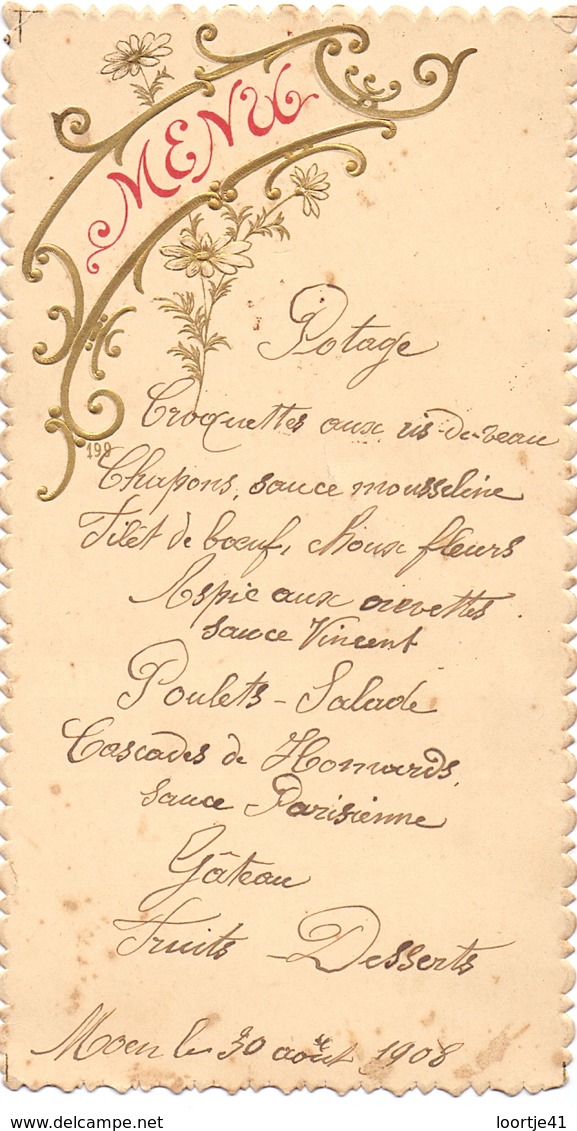 MENU
Potage
Croquettes aux ris-de-veau
199
Chapons, sauce mousseline
Filèt de bœuf, choux fleurs
Aspic aux crevettes
sauce Vincent
Poulets - Salade
Cascades de Homards,
sauce Parisienne
Gâteau
Fruits - Desserts
Moen le 30 août 1908
delcampe.net
loortje41